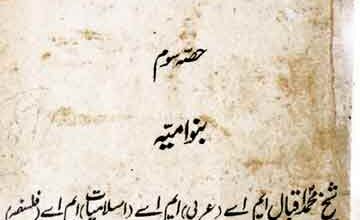 حصہ سوم
بنو امیہ
شیخ محمد اقبال ایم اے (عربی) ایم اے (اسلامیات) ایم اے (فلسفہ)